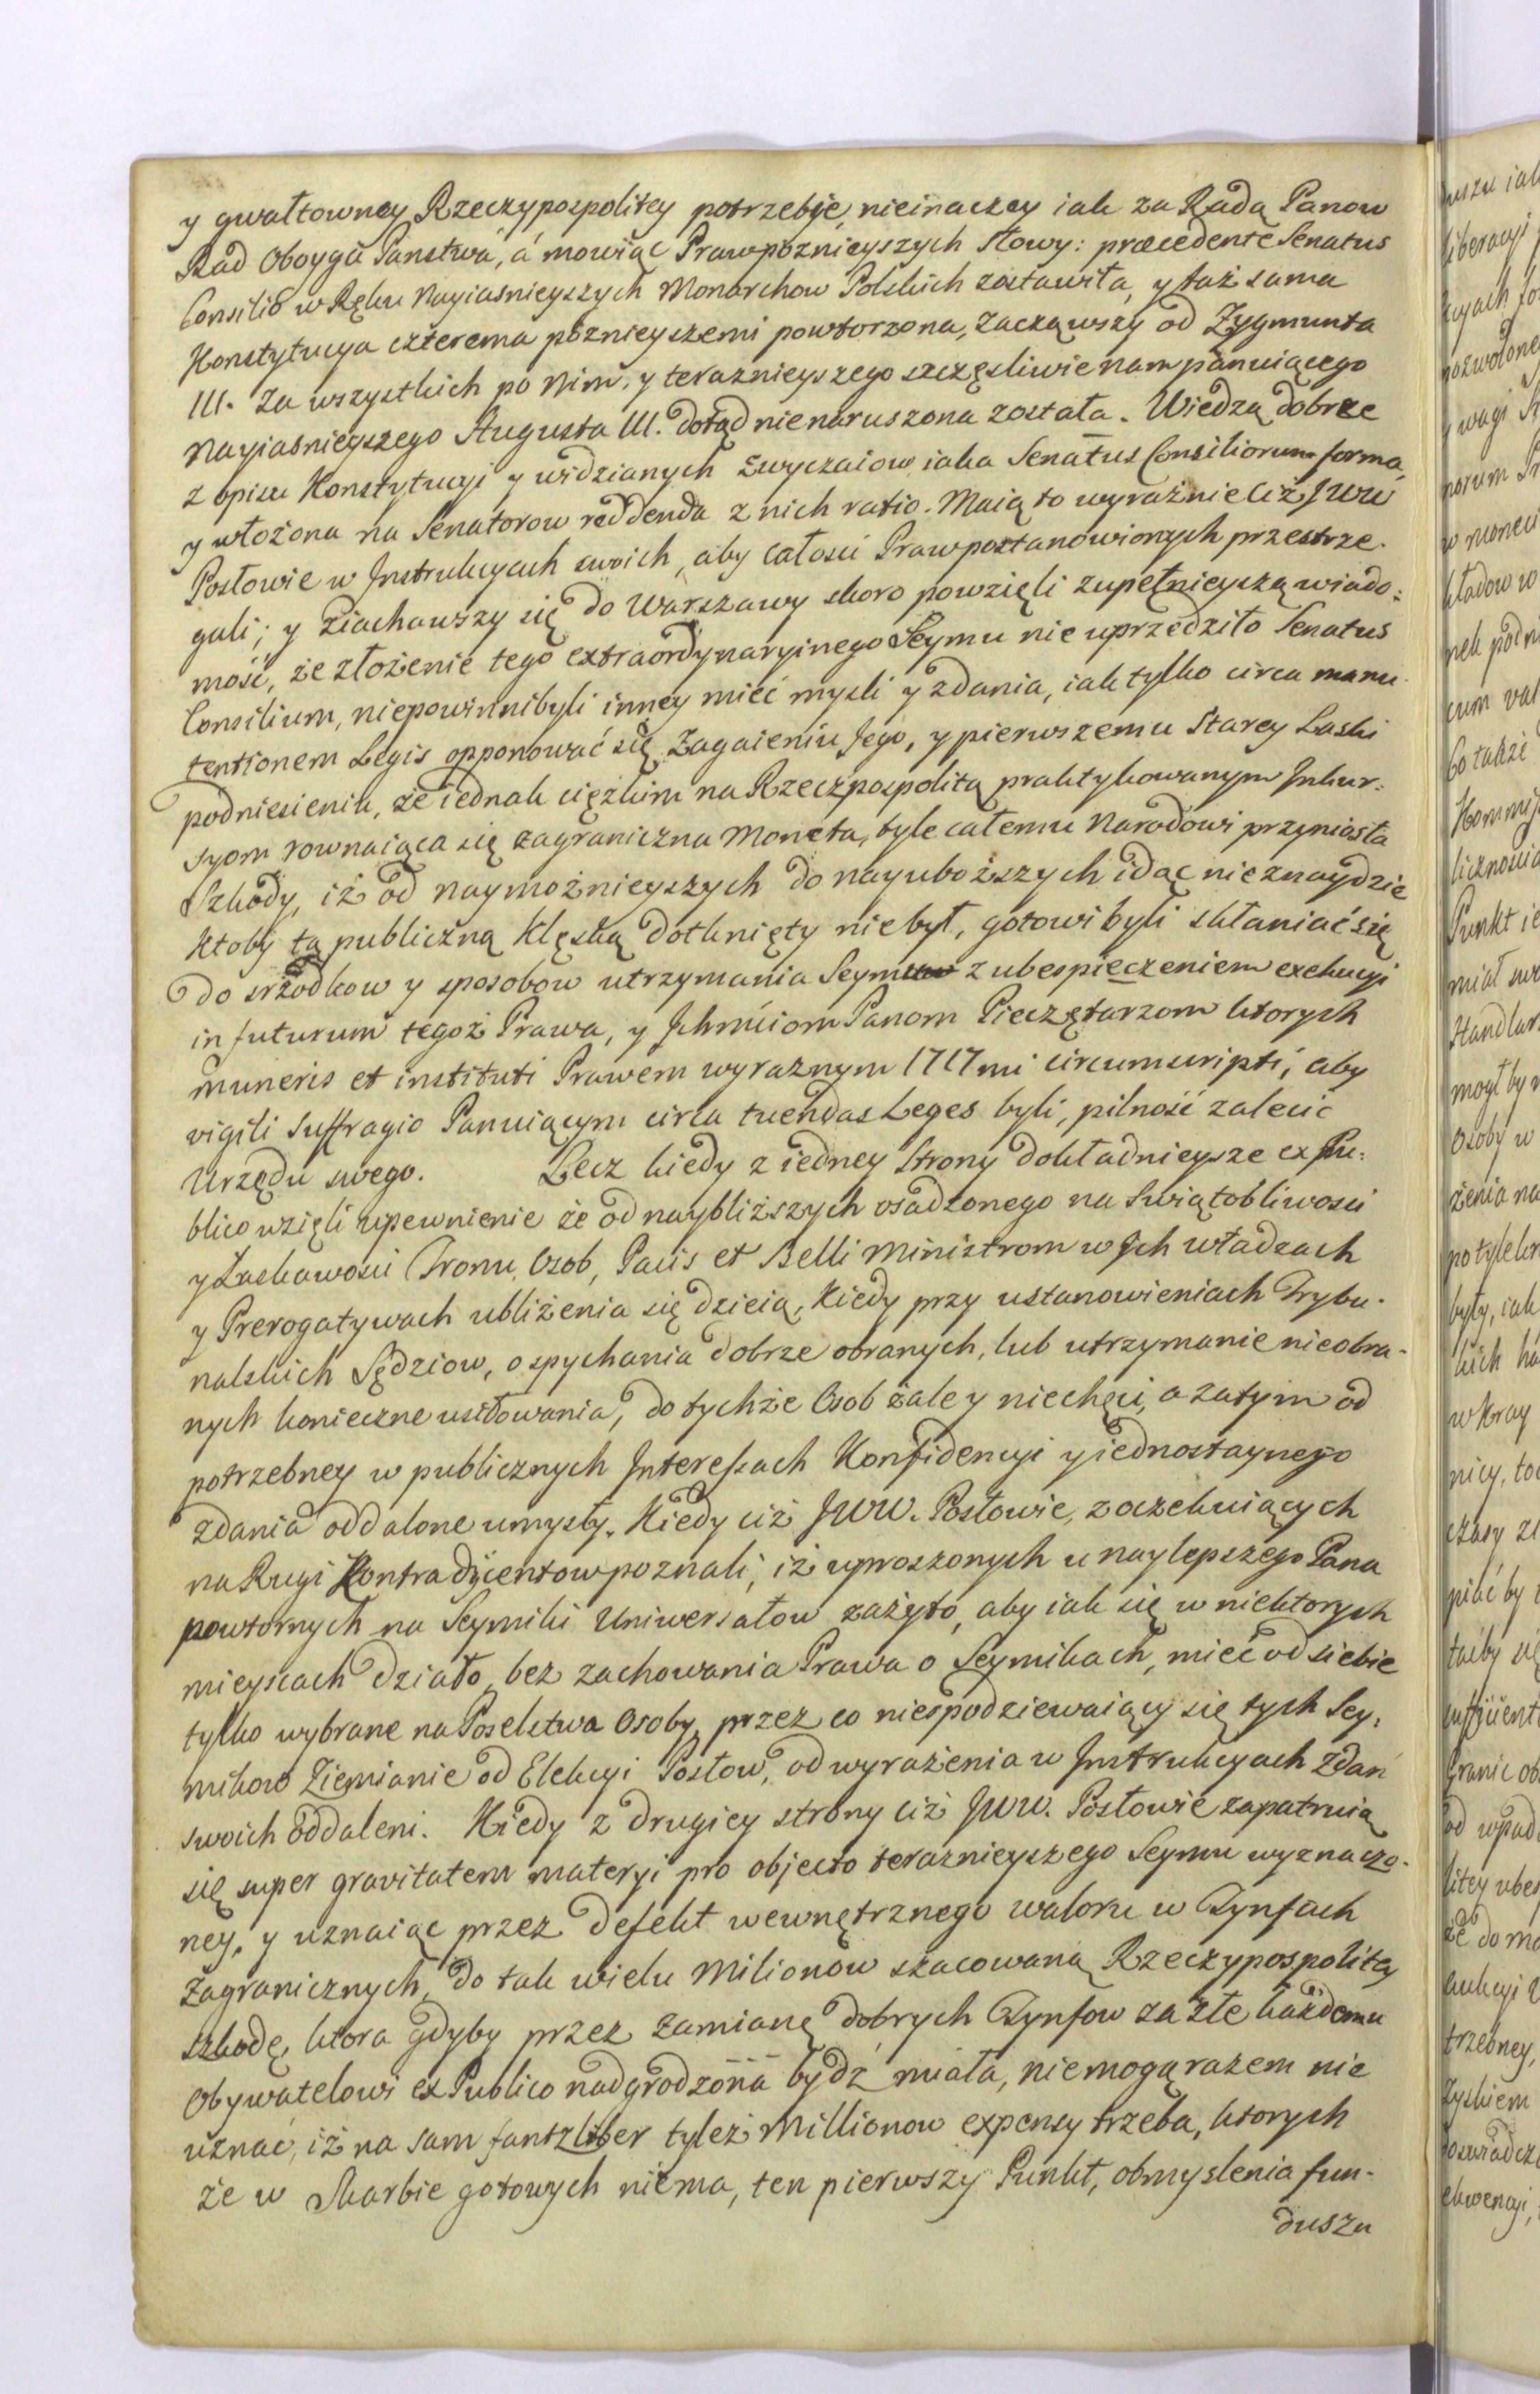 y gwałtowney Rzeczypospolitey potrzebie, nieinaczey iak za Radą Panow
Rad Oboyga Panstwa, á mowiąc Praw poznieyszych słowy: præcedente Senatus
Consilio w Ręku Nayiasnieyszych Monarchow Polskich zostawiła, y taż sama
Konstytucya czterema poznieyszemi powtorzona, zacząwszy od Zygmunta
III. za wszystkich po Nim, y teraznieyszego szczęsliwie nam panuiącego
Nayiasnieyszego Augusta III. dotąd nienaruszona została. Wiedzą dobrze
z opisu Konstytucyi y widzianych zwyczaiow iaka Senatus Consiliorum forma,
y włożona na Senatorow reddenda z nich ratio. Maią to wyraźnie Ciż JWW
Posłowie w Instrukcyach swoich, aby całosci Praw postanowionych przestrze-
gali; y ziachawszy się do Warszawy skoro powzięli zupełnieyszą wiado:
mość, że złożenie tego extraordynaryinego Seymu nie uprzedziło Senatus
Consilium, niepowinni byli inney mieć mysli y zdania, iak tylko circa manu-
tentionem Legis opponować się Zagaieniu Jego, y pierwszemu Starey Laski
podniesieniu, że iednak cięzkim na Rzeczpospolitą praktykowanym Inkur:
syom rownaiąca się zagraniczna Moneta, tyle całemu Narodowi przyniosła
Szkody, iż od naymożnieyszych do nayuboższych idąc nieznaydzie
ktoby tą publiczną klęską dotknięty niebył, gotowi byli skłaniać się
do srzodkow y sposobow utrzymania Seymu z ubespieczeniem exekucyi
in futurum tegoż Prawa, y Ichmćiom Panom Pieczętarzom ktorych
muneris et instituti Prawem wyraznym 1717mi circumscripti, aby
vigili suffragio Panuiącym circa tuendas Leges byli, pilność zalecić
Urzędu swego. Lecz kiedy z iedney Strony dokładnieysze ex Pu:
blico wzięli upewnienie że od naybliższych osadzonego na Swiątobliwosci
y Łaskawosci Tronu, Osob, Pacis et Belli Ministrom w Ich władzach
y Prerogatywach ubliżenia się dzieią, Kiedy przy ustanowieniach Trybu-
nalskich Sędziow, ospychania dobrze obranych, lub utrzymanie nieobra-
nych konieczne usiłowania, do tychże Osob żale y niechęci, a zatym od
potrzebney w publicznych Interessach Konfidencyi y iednostaynego
zdania oddalone umysły. Kiedy ciż JWW. Posłowie, z oczekuiących
na Rugi Kontradycentow poznali, iż uproszonych u naylepszego Pana
powtornych na Seymiki Uniwersałow zażyto, aby iak się w niektorych
mieyscach działo, bez zachowania Prawa o Seymikach, mieć od siebie
tylko wybrane na Poselstwa Osoby, przez co niespodziewaiący się tych Sey:
mikow Ziemianie od Elekcyi Posłow, od wyrażenia w Instrukcyach zdań
swoich oddaleni. Kiedy z drugiey strony ciż JWW. Posłowie zapatruią
się super gravitatem materyi pro objecto teraznieyszego Seymu wyznaczo-
ney, y uznaiąc przez defekt wewnętrznego waloru w Tynfach
Zagranicznych, do tak wielu Milionow szacowaną Rzeczypospolitey
szkodę, ktora gdyby przez zamianę dobrych Tynfow za złe każdemu
Obywatelowi ex Publico nadgrodzona bydź miała, niemogą razem nie
uznać, iż na sam fantzliber tyleż Millionow expensy trzeba, ktorych
że w Skarbie gotowych niema, ten pierwszy Punkt, obmyslenia fun-
duszu